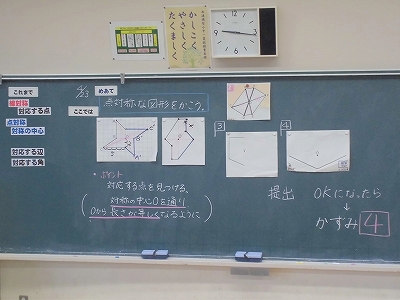 かしこく
やさしく
たくましく
これまで
線対称
対応する点
点対称
対称の中心
対応する辺
対応する角
6/23
めあて
点対称な図形をかこう。
ここでは
3
4
・ポイント
対応する点を見つける。
対称の中心Oを通り
Oから長さが等しくなるように
提出 OKになったら
↓
かずみ 4